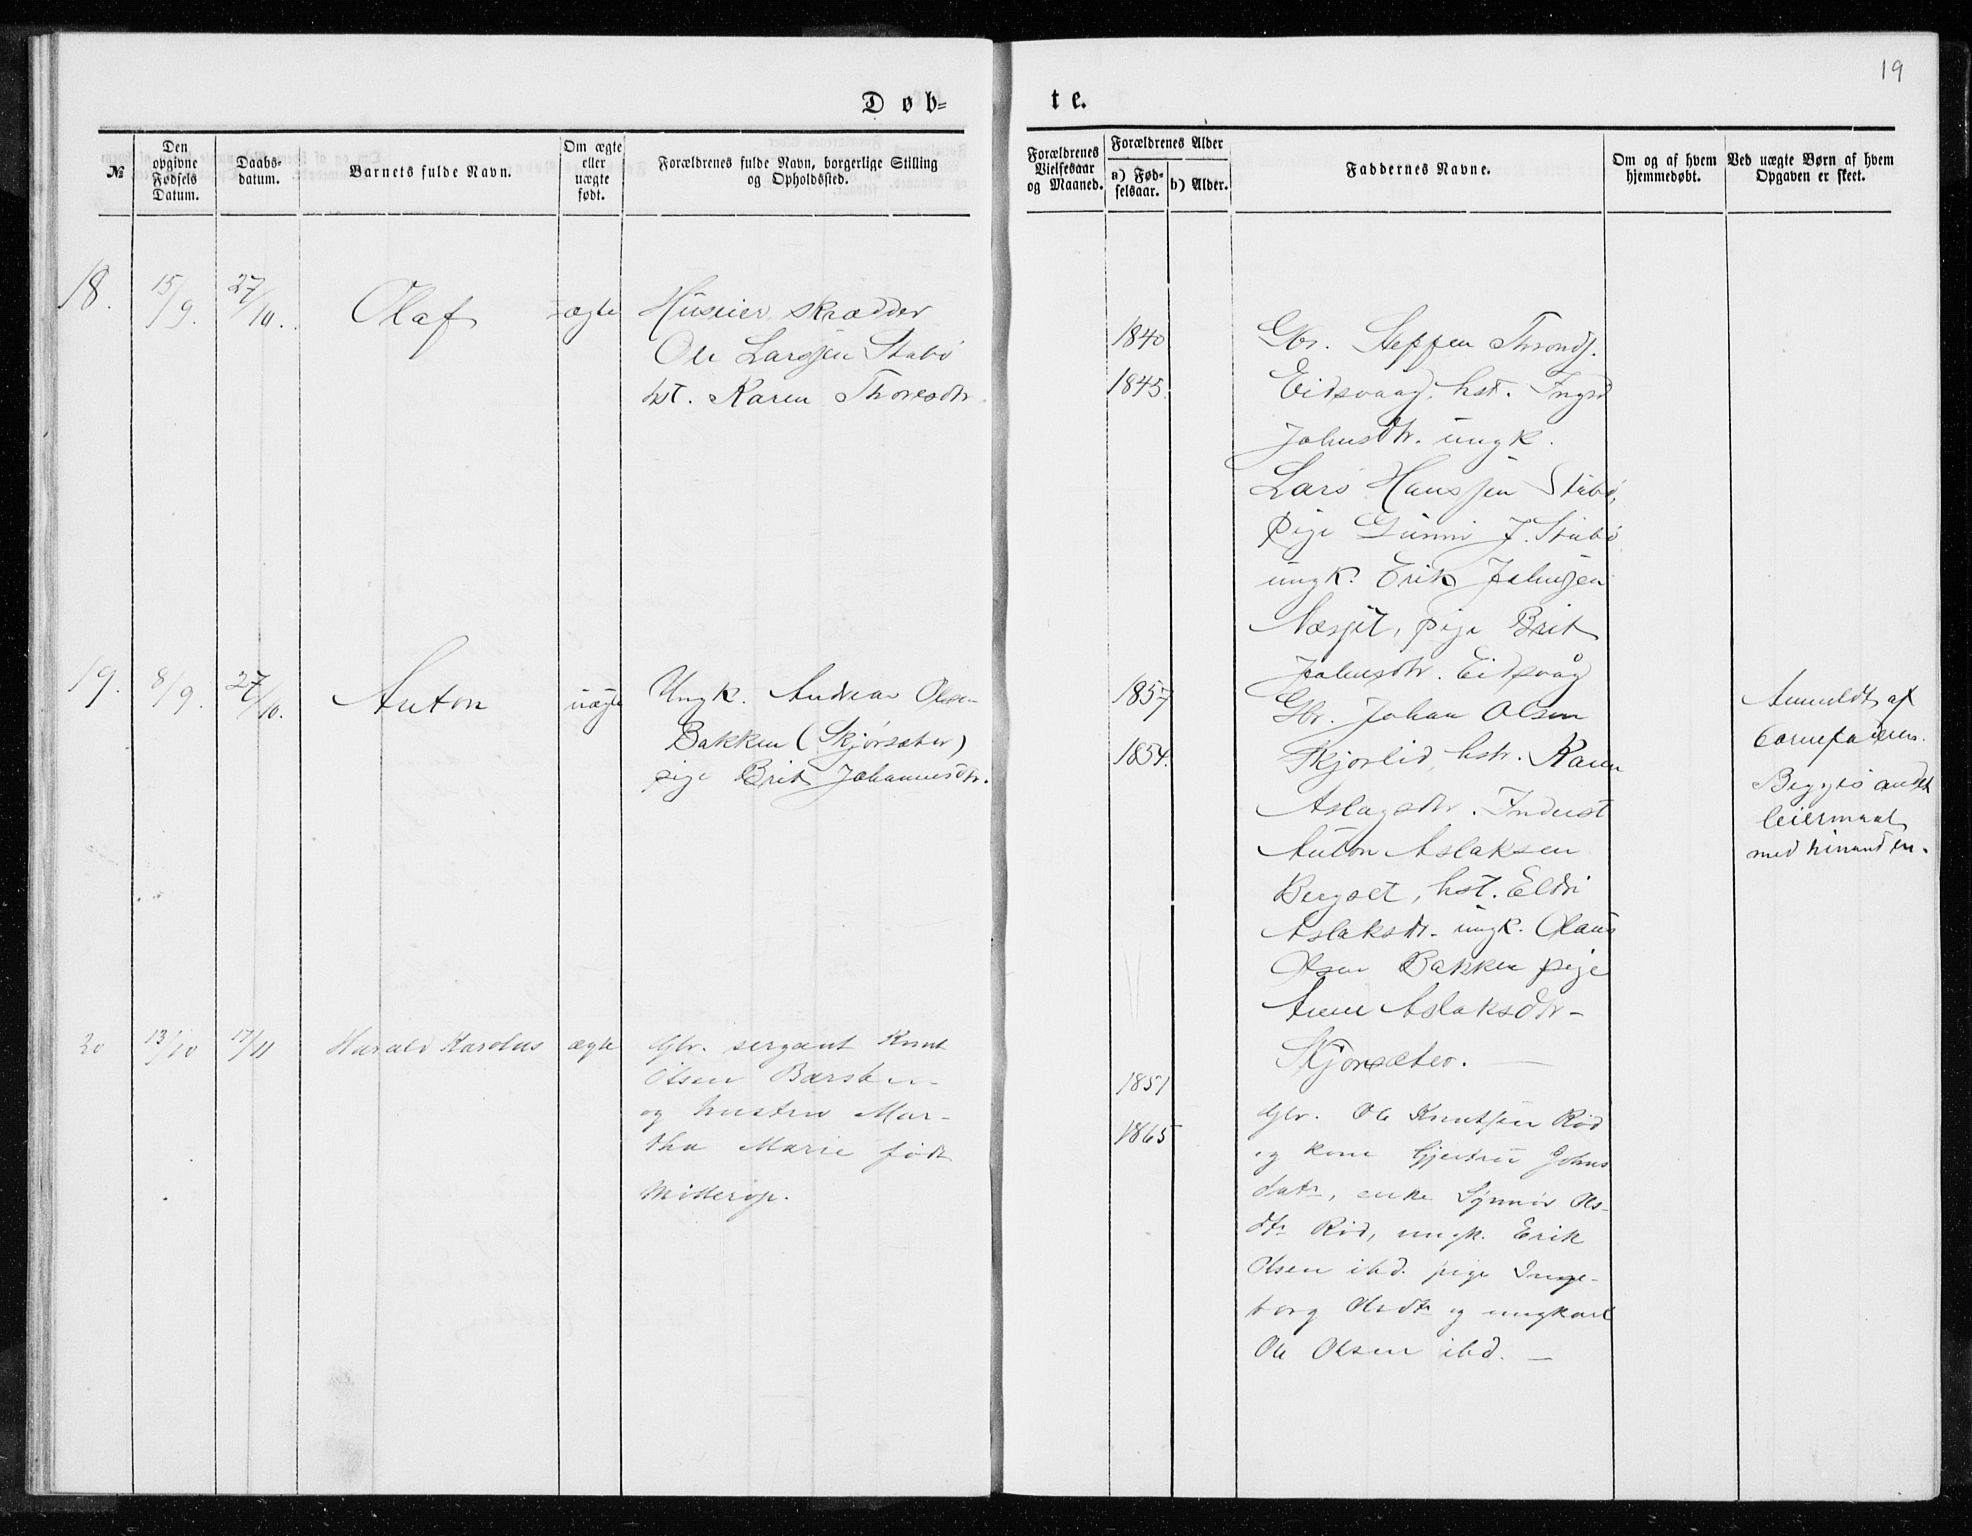 19
Døb-
te.
№
Den opgivne Fødsels Datum.
Daabs-datum.
Barnets fulde Navn.
Om ægte eller uægte født.
Forældrenes fulde Navn, borgerlige Stilling og Opholdssted.
Forældrenes Vielsesaar og Maaned.
Forældrenes Alder
a) Fødselsaar.
b) Alder.
Faddernes Navne.
Om og af hvem hjemmedøbt.
Ved uægte Børn af hvem Opgaven er skeet.
18. 15/9. 27/10. Olaf ægte
Huseier, skrædder
Ole Larssen Stubø
hst. Karen Thoresdtr.
1840
1845.
Gbr. Steffen Thronds.
Eidsvaag, hst. Ingrd
Johnsdtr. ungk.
Lars Hanssen Stubø,
pige Gunni J. Stubø
ungk. Erik Johnsen
Næsjet, pige Brit
Johnsdtr. Eidsvåg
19. 8/9. 27/10. Anton uægte
Ungk. Andreas Olsen
Bakken (Skjørsæter)
pige Brit Johannesdtr.
1857
1854.
Gbr. Johan Olsen
Skjørlid, hstr. Karen
Aslagsdtr. Inderst
Anton Aslaksen
Bergset, hst. Eldri
Aslaksdtr. ungk. Olaus
Olsen Bakken pige
Anne Aslaksdtr -
Skjørsæter. —
Anmeldt af
barnefaderen.
Begges andet
leiermaal
med hinanden.
20 13/10 17/11 Harald Karolus ægte
Gbr. sergeant Knut
Olsen
og hustru Mar-
tha Marie født
1851
1865
Gbr. Ole Knutsen Rød
og kone Gjertrud Johns
datr, enke Synnøv Ols-
dtr Rød, ungk. Erik
Olsen ibd. pige Inge-
borg Olsdtr og ungkarl
Ole Olsen ibd. —